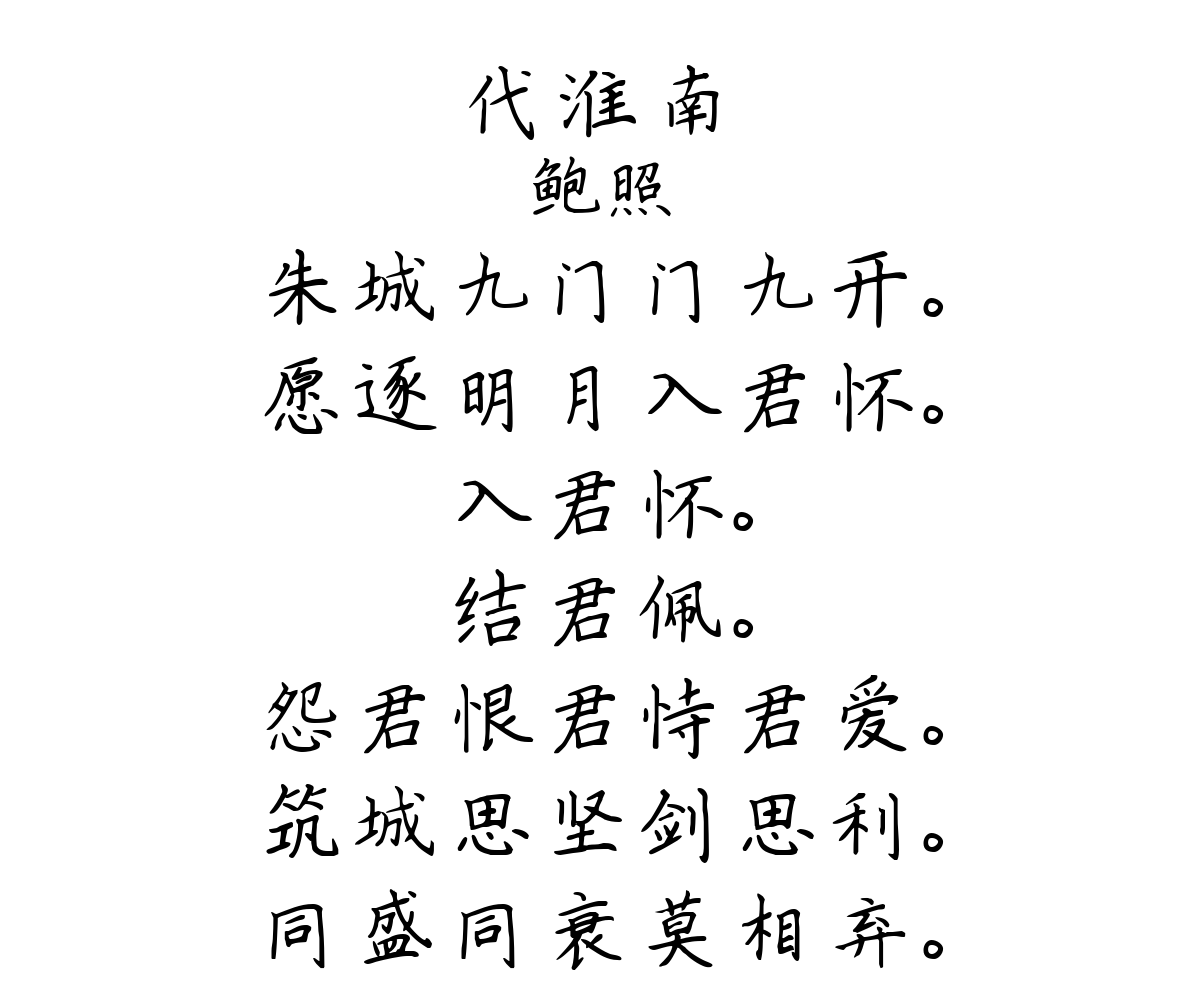 代淮南
鲍照
朱城九门门九开。
愿逐明月入君怀。
入君怀。
结君佩。
怨君恨君恃君爱。
筑城思坚剑思利。
同盛同衰莫相弃。